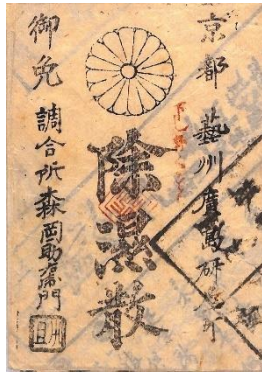 京都 藝州廣島研屋町
除湿散
御免 調合所森岡助右衛門